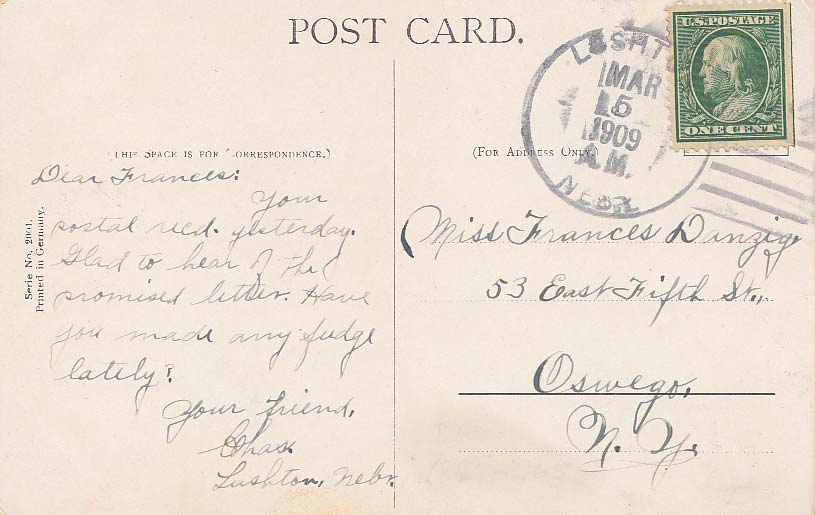 POST CARD.
U.S. POSTAGE
ONE CENT
MAR
15
1909
A.M.
NEBR.
(THIS SPACE IS FOR CORRESPONDENCE.)
(FOR ADDRESS ONLY.)
Serie No, 2001.
Printed in Germany.
Dear Frances:
Your
postal recd. yesterday.
Glad to hear of the
promised letter. Have
you made any fudge
lately?
Your friend,
Chas.
Lushton, Nebr.
Miss Frances Danzig,
53 East Fifth St.,
Oswego,
N. Y.